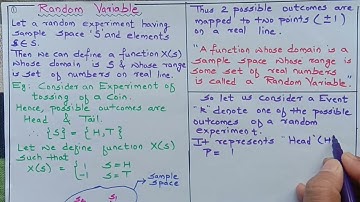 ①
Random Variable
Let a random experiment having
sample space 'S' and elements
S∈S.
Then we can define a function X(s)
whose domain is S & whose range
is set of numbers on real line.
Eg: Consider an Experiment of
tossing of a Coin
Hence, possible outcomes are
Head & Tail.
∴ {S} = {H, T}
Let we define function X(s)
such that
X(s) = { 1 s = H
-1 s = T
Sample
space
S₁ S₂
Thus 2 possible outcomes are
mapped to two points (±1)
on a real line.
"A function whose domain is a
sample space whose range is
some set of real numbers
is called a "Random Variable".
So let us Consider a Event
"k" denote one of the possible
outcomes of a random
experiment.
It represents "Head" (H
P = 1